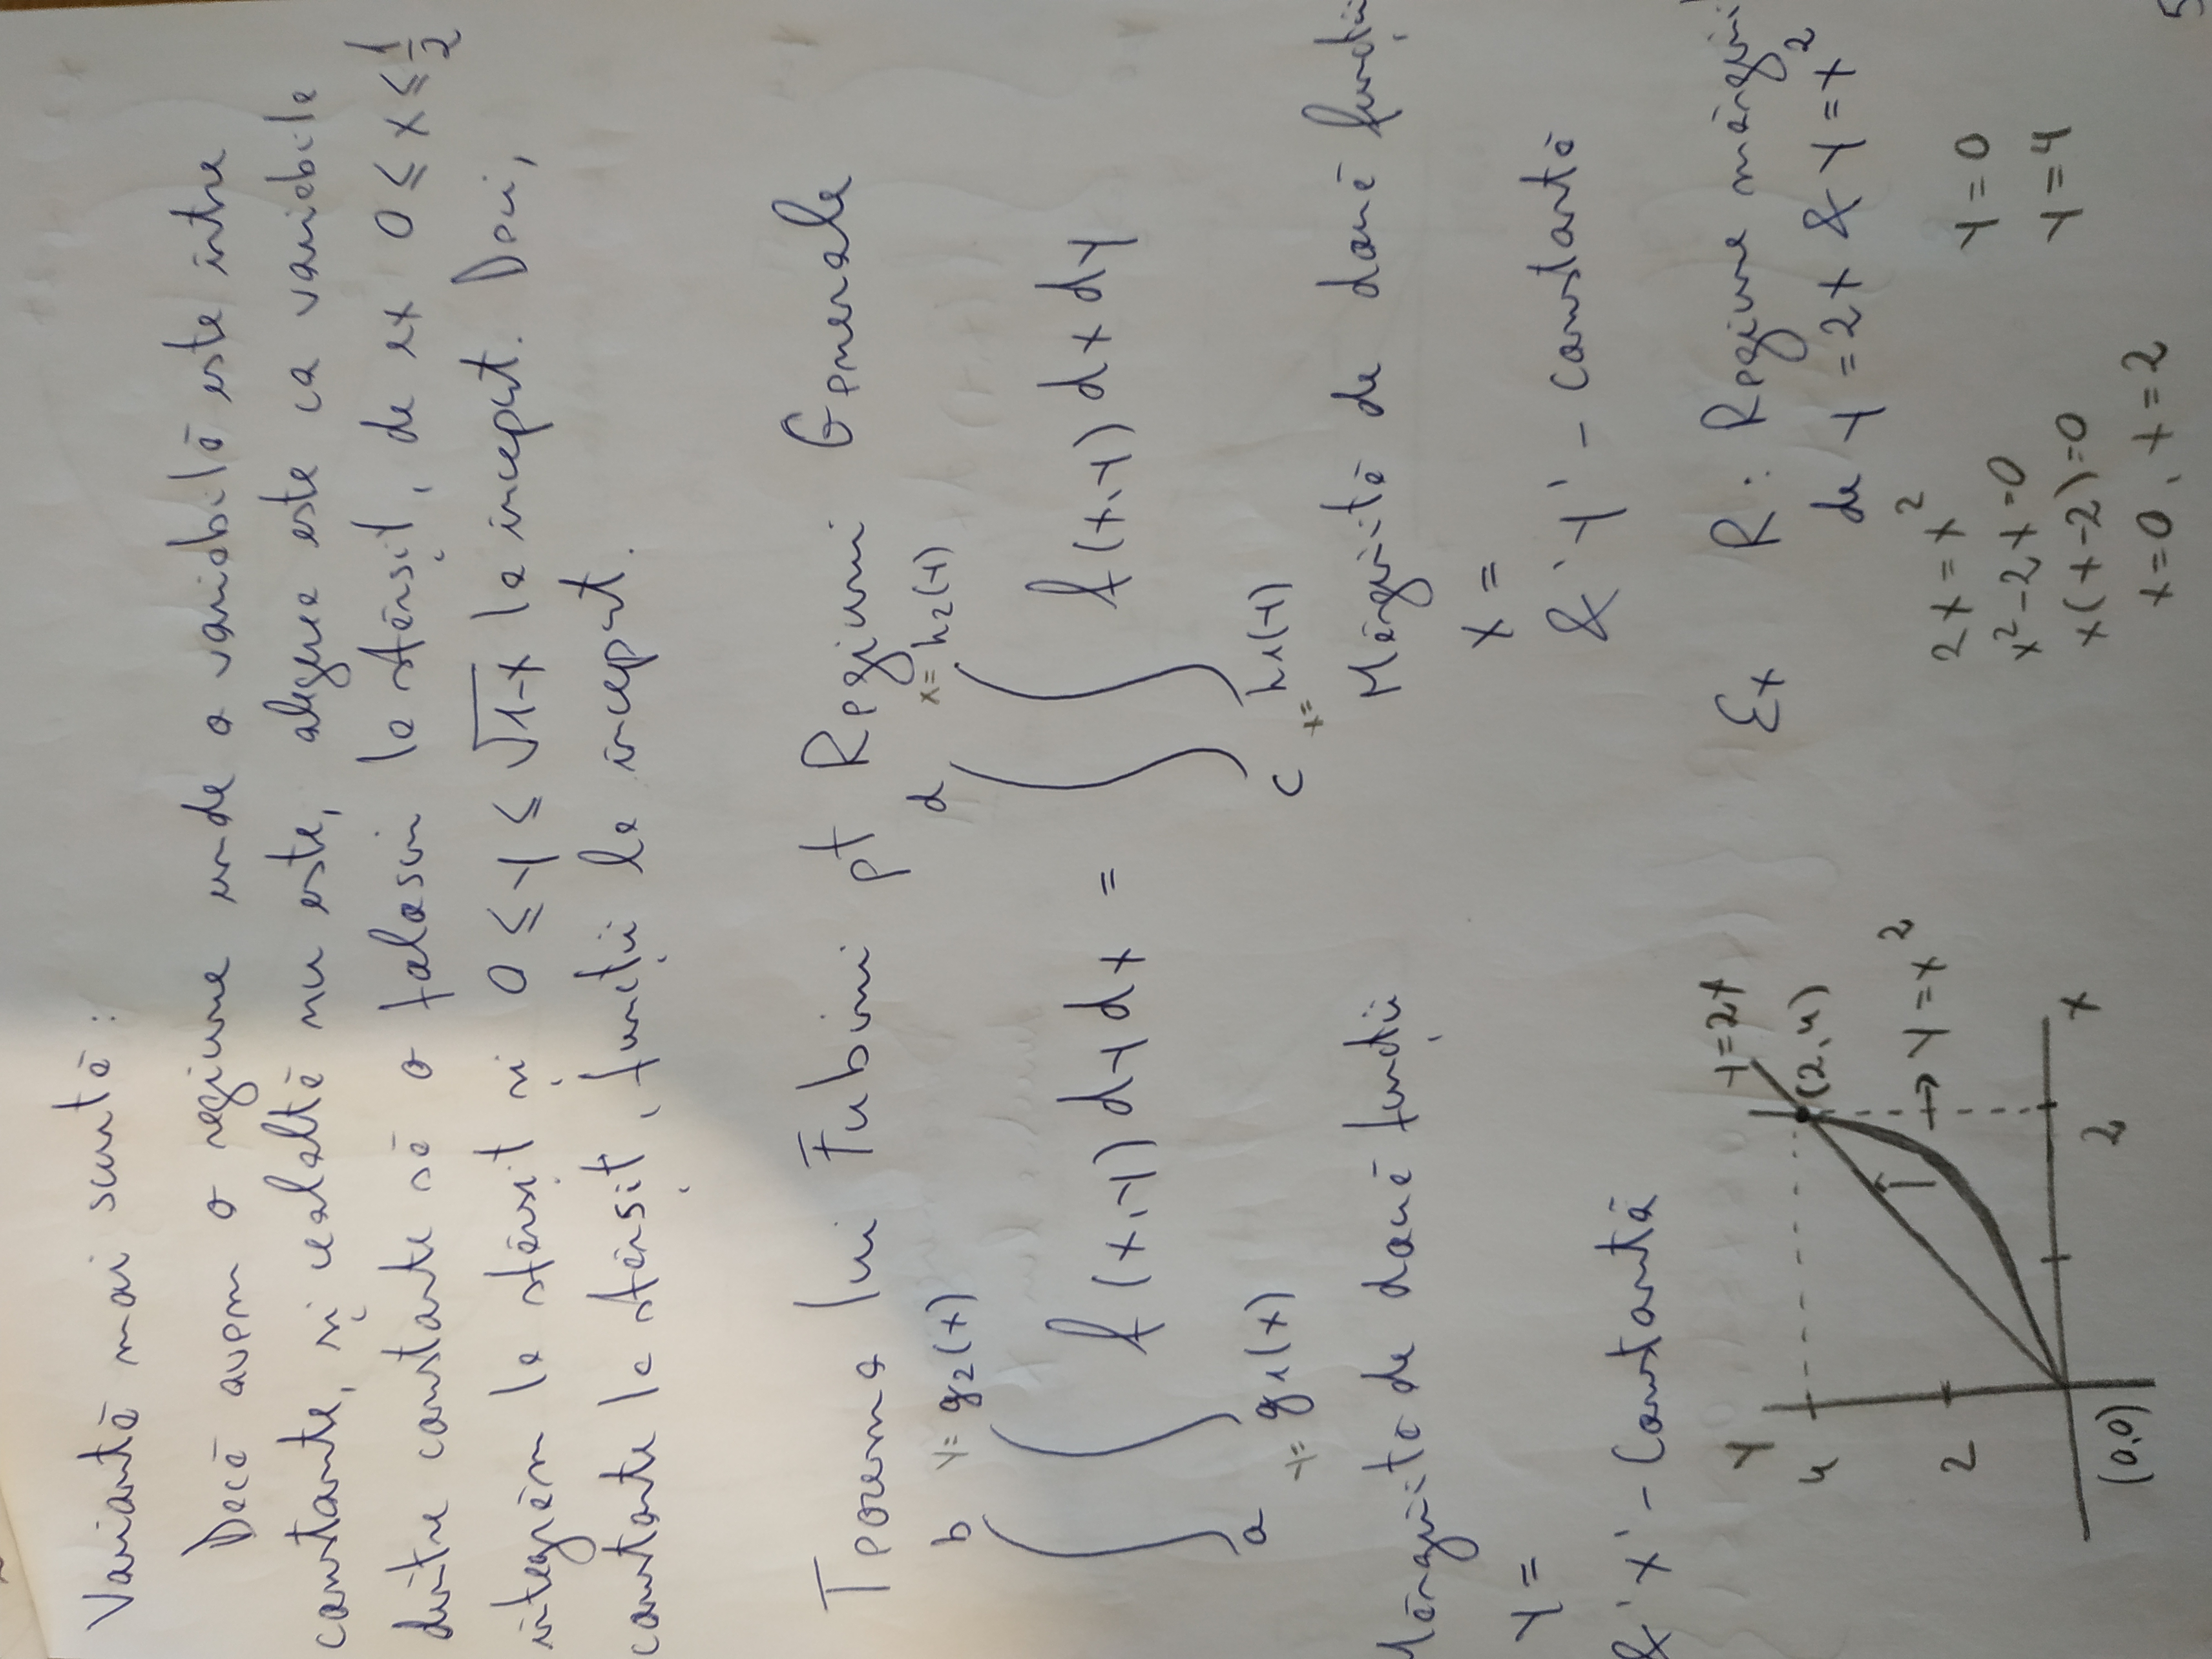 Variantă mai scurtă:
Dacă avem o regiune unde o variabilă este între
constante, și cealaltă nu este, alegerea este ca variabila
dintre constante să o folosim la sfârșit, de ex 0 ≤ x ≤ 1/2
integrăm la sfârșit și 0 ≤ y ≤ √1-x la început. Deci,
constante la sfârșit, funcții la început.
Teorema lui Fubini pt Regiuni Generale
b y= g2(x) d x= h2(y)
∫ ∫ f(x,y) dy dx = ∫ ∫ f(x,y) dx dy
a y= g1(x) c x= h1(y)
Mărginită de două funcții
y =
& 'x' - Constantă
Mărginită de două funcții
x =
& 'y' - constantă
y
y=2x
4
(2,4)
2
→ y = x²
2
x
(0,0)
Ex R: Regiune mărgini
de y = 2x & y = x²
2x = x²
x² - 2x = 0
x(x-2) = 0
x = 0, x = 2
y = 0
y = 4
5